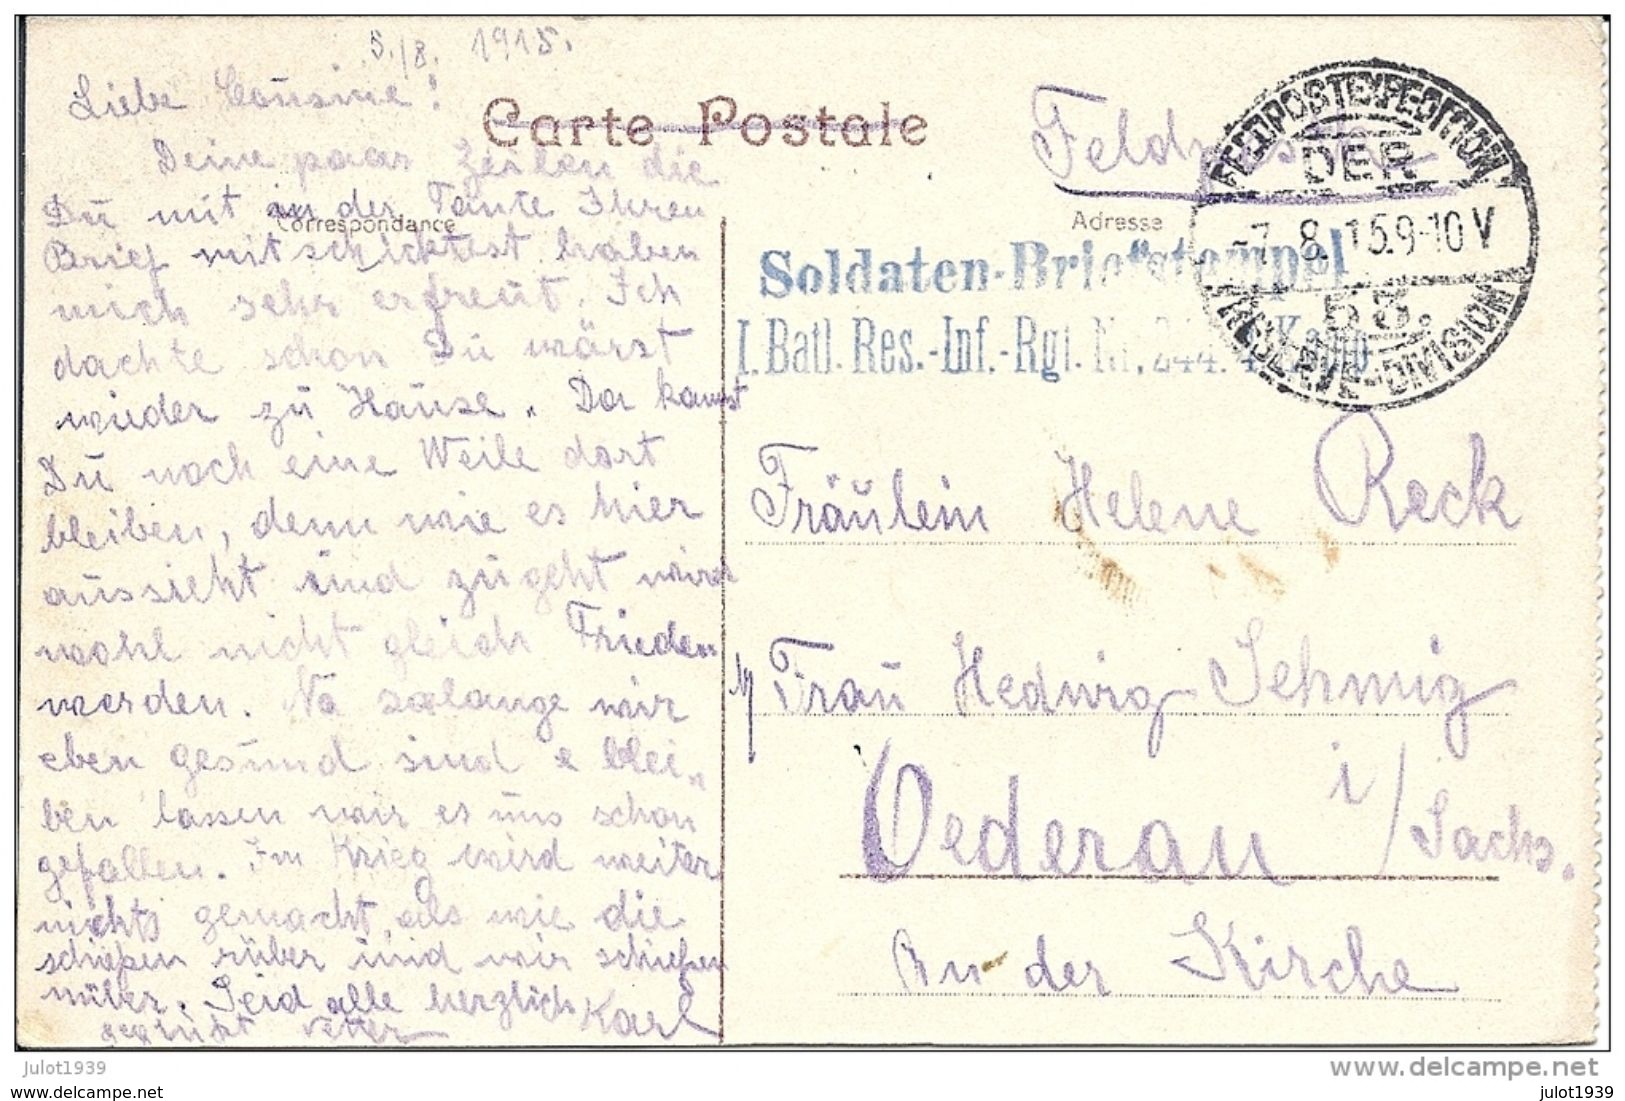 5./8. 1915.
Liebe Cousine!
Deine paar Zeilen die
Du mit in der Tante Ihren
Brief mitschicktest haben
mich sehr erfreut. Ich
dachte schon Du wärst
wieder zu Hause. Da kannst
Du noch eine Weile dort
bleiben, denn wie es hier
aussieht und zugeht wird
wohl nicht gleich Frieden
werden. Na solange wir
eben gesund sind & blei„
ben lassen wir es uns schon
gefallen. Im Krieg wird weiter
nichts gemacht als wie die
schießen rüber und wir schießen
nüber. Seid alle herzlich
gegrüßt Vetter Karl
Carte Postale
Correspondance
Adresse
Feldpost
FELDPOSTEXPEDITION
DER
-7. 8. 15. 9-10 V
53.
RESERVE-DIVISION
Soldaten-Briefstempel
I. Batl. Res.-Inf.-Rgt. Nr. 244. 4. Komp.
Fräulein Helene Reck
Frau Hedwig Sehmig
Oederan i/Sachs.
An der Kirche
julot1939
www.delcampe.net
julot1939
julot1939